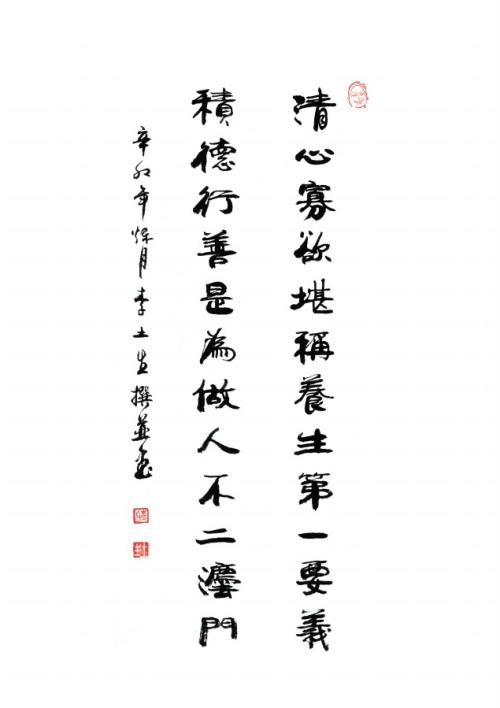 清心寡欲堪稱養生第一要義
積德行善是為做人不二灋門
辛卯年月李土生撰並書